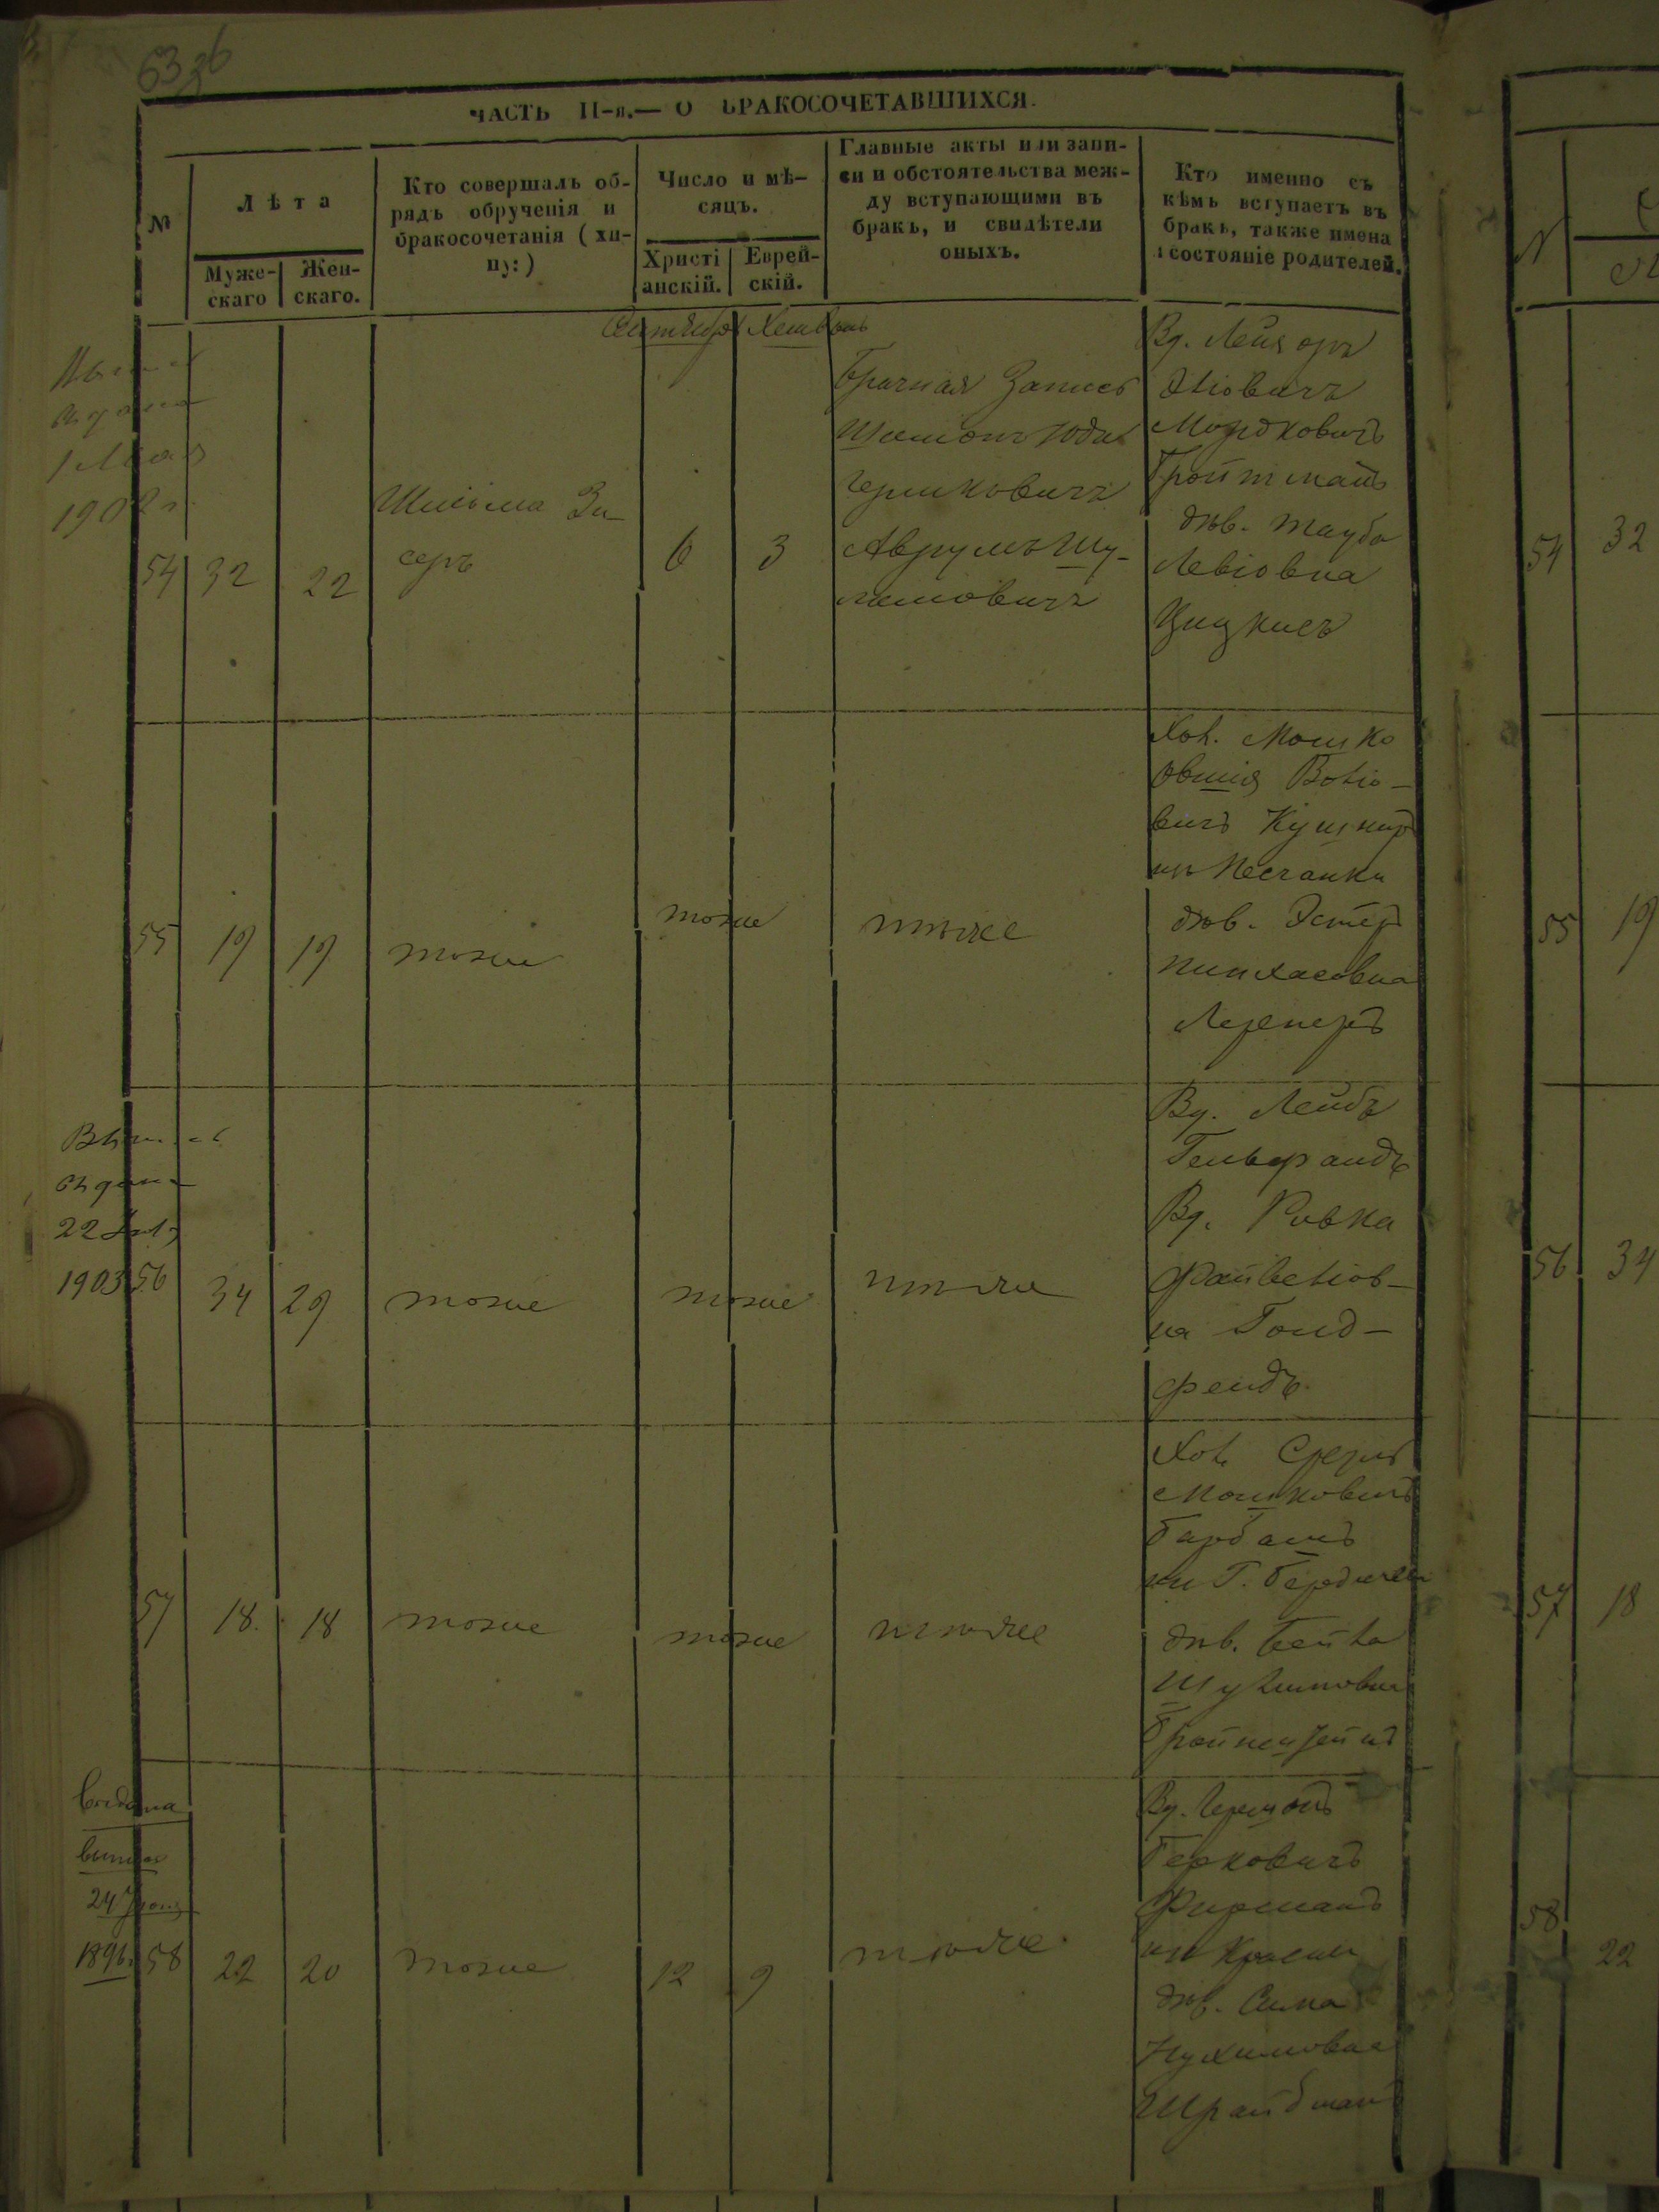 ЧАСТЬ II-я.— О БРАКОСОЧЕТАВШИХСЯ.
№
Лѣта
Муже-
скаго
Жен-
скаго.
Кто совершалъ об-
рядъ обрученія и
бракосочетанія (хи-
пу:)
Число и мѣ-
сяцъ.
Христі
анскій.
Еврей-
скій.
Главные акты или запи-
си и обстоятельства меж-
ду вступающими въ
бракъ, и свидѣтели
оныхъ.
Кто именно съ
кѣмъ вступаетъ въ
бракъ, также имена
и состояніе родителей.
1902 г.
54
32
22
Шліома Зи-
серъ
6
3
Брачная Запись
Юдка
Гершковичъ
Аврумъ Шу-
лимовичъ
Вд.
Мордковичъ
Тройтманъ
дѣв. Тауба
Левіовна
Цицкисъ
55
19
19
тоже
тоже
тоже
Хол. Мошко
Овшія
вичъ Кушниръ
изъ Песчанки
дѣв. Эстеръ
Пинхасовна
Лернеръ
22
1903
56
34
29
тоже
тоже
тоже
Вд. Лейбъ
Гельфандъ
Вд. Ривка
Файвелiов-
на Гольд-
фельдъ
57
18.
18
тоже
тоже
тоже
Хол. Сруль
Мошковичъ
Барбашъ
изъ Г. Бердичева
дѣв. Бейла
Шулимовна
видана
выпись
24
1896.
58
22
20
тоже
12
9
тоже
Вд. Гершонъ
Берковичъ
Фирманъ
изъ
дѣв. Сима
Нухимовна
Шрайбманъ
54
32
55
19
56
34
57
18
58
22